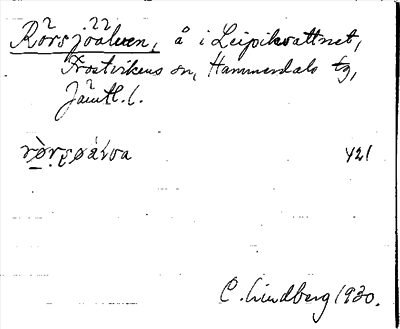 Rörsjöälven, å i Leipikvattnet,
Frostvikens sn, Hammerdals tg,
Jämtl. l.
rø̀rşøáʹlva 421
C. Lindberg 1930.